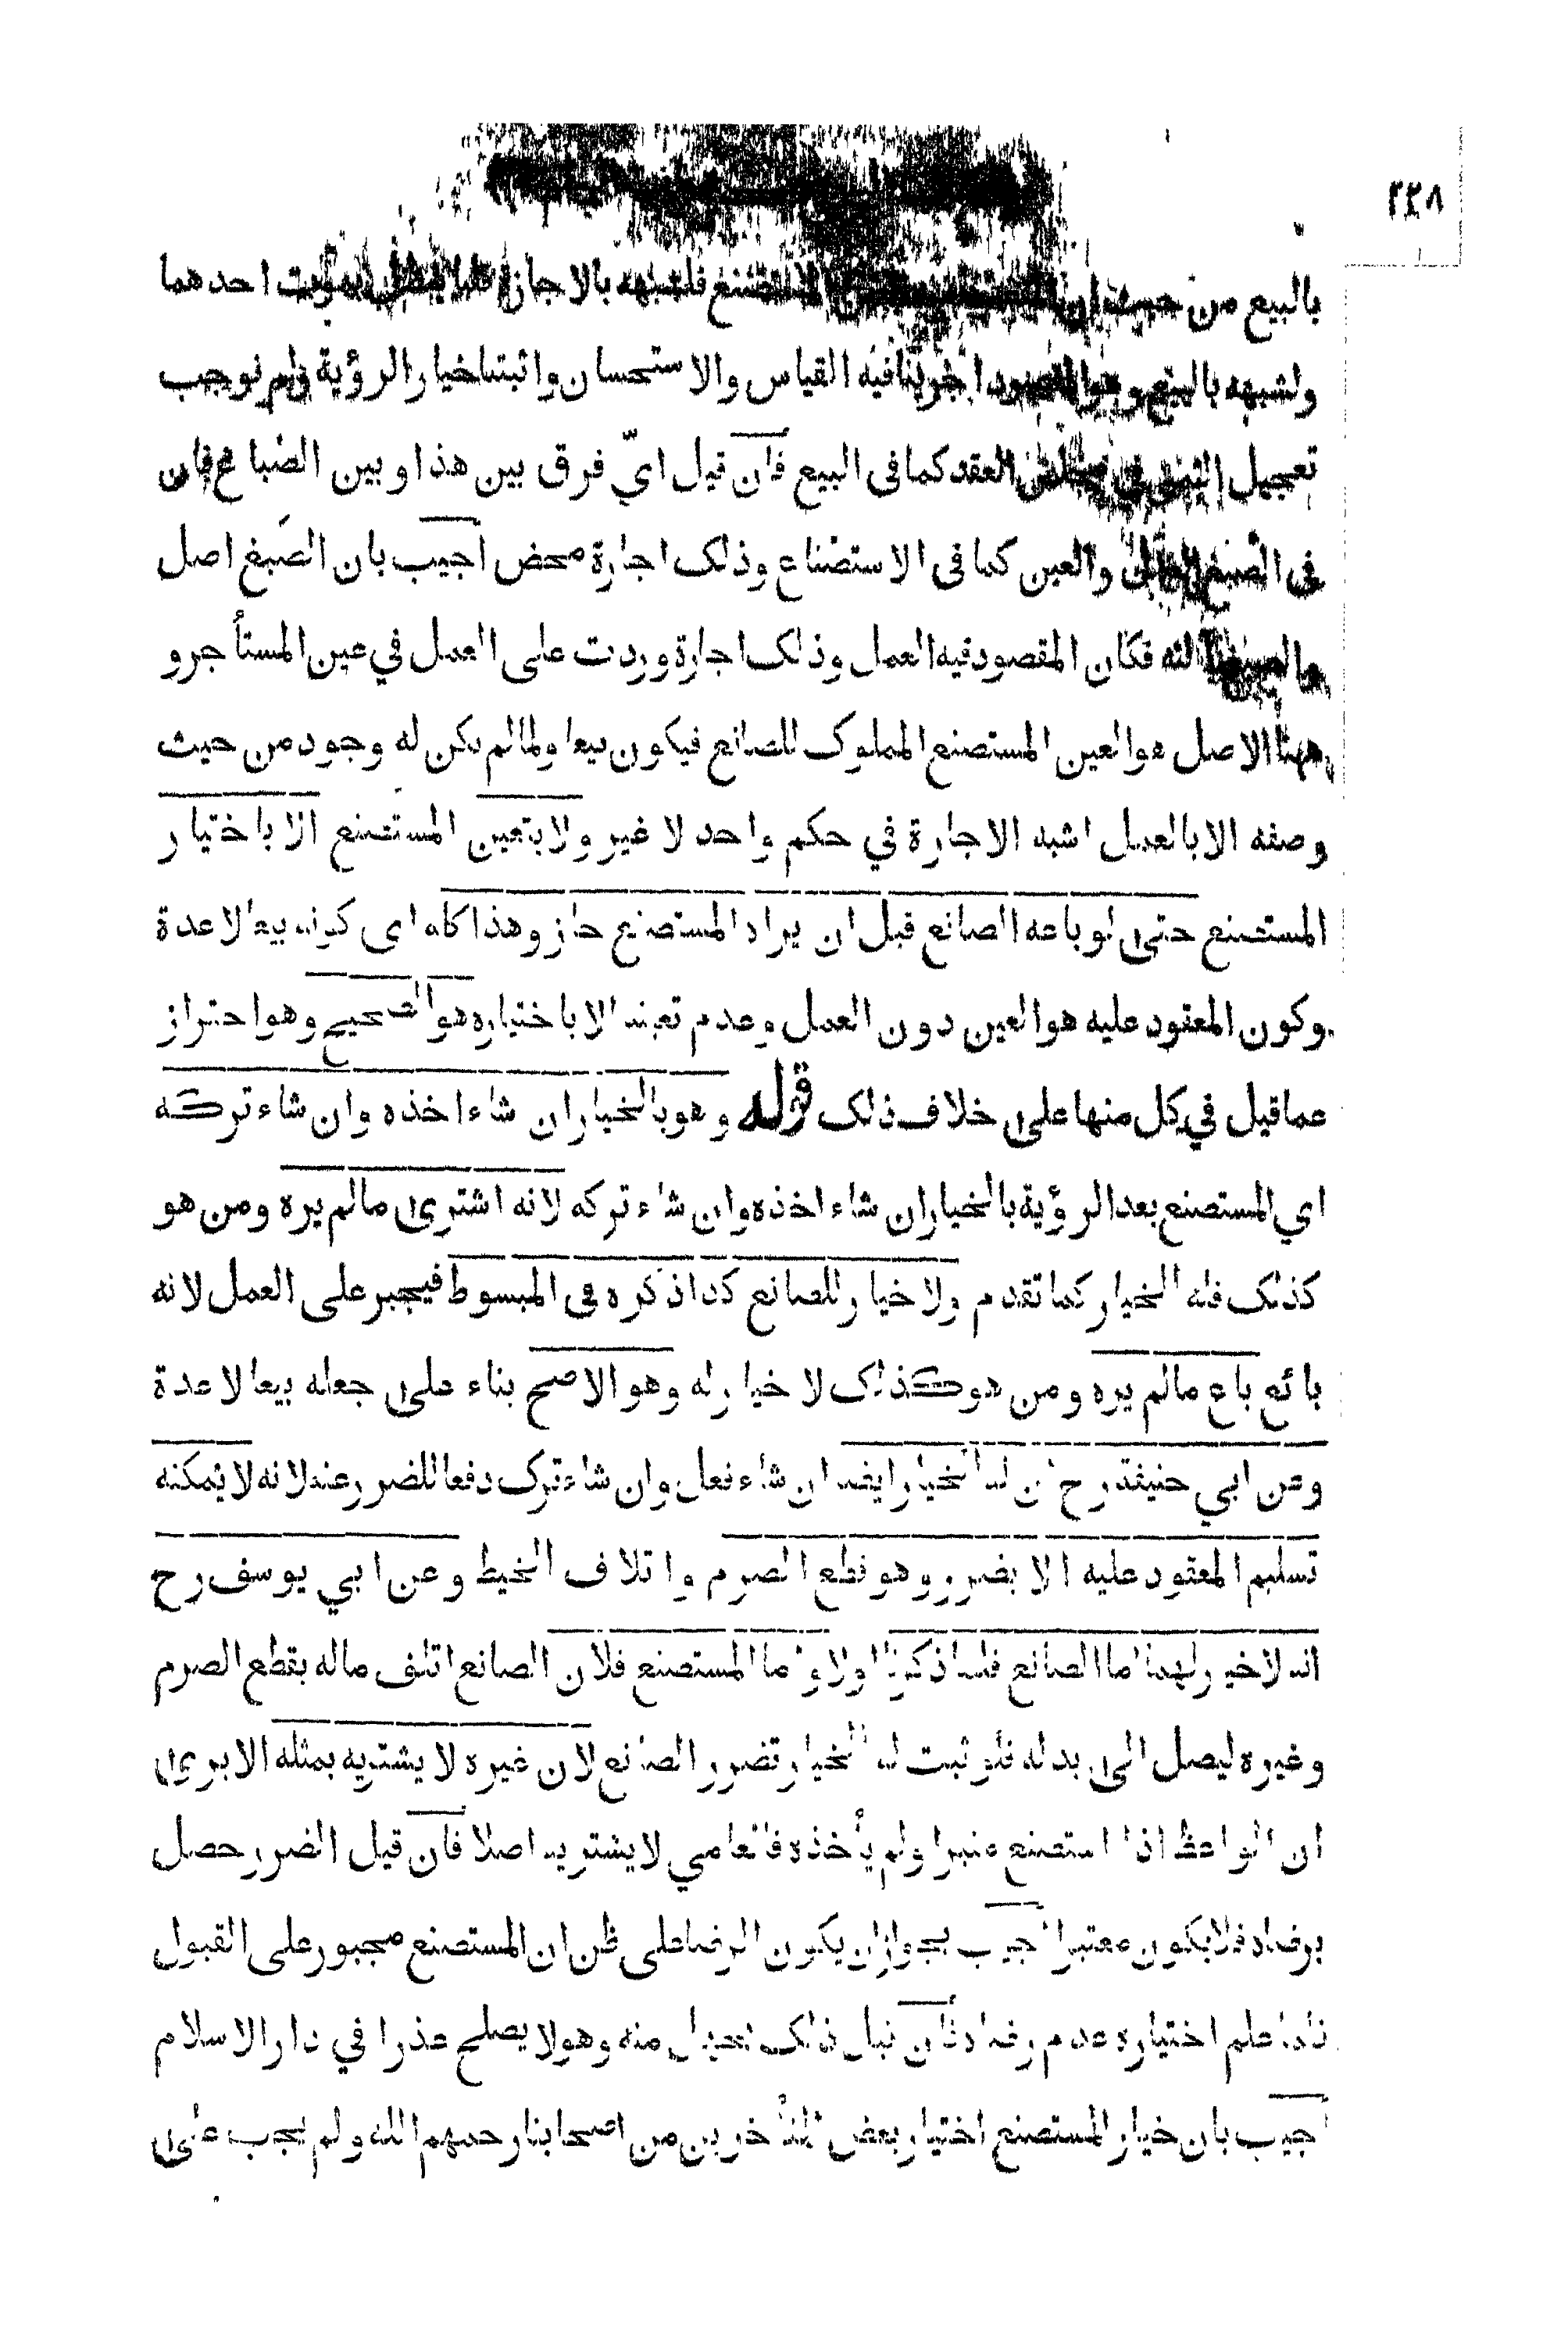 ٢٢٨
بالبيع من حيث ان المستصنع فلشبهه بالاجارة قلنا يبطل بموت احدهما
ولشبهه بالبيع وهو المقصود اجرينا فيه القياس والاستحسان واثبتنا خيار الرؤية ولم نوجب
تعجيل الثمن في مجلس العقد كما فى البيع فان قيل ايّ فرق بين هذا وبين الصباغ فان
فى الصبغ العمل والعين كما فى الاستصناع وذلك اجارة محض اجيب بان الصبغ اصل
فكان المقصود فيه العمل وذلك اجارة وردت على العمل في عين المستأجر و
ههنا الاصل هو العين المستصنع المملوك للصانع فيكون بيعا ولما لم يكن له وجود من حيث
وصفه الا بالعمل اشبه الاجارة في حكم واحد لا غير ولا يتعين المستصنع الا باختيار
المستصنع حتى لو باعه الصانع قبل ان يراه المستصنع جاز وهذا كله اى كونه بيعا لا عدة
وكون المعقود عليه هو العين دون العمل وعدم تعينه الا باختياره هو الصحيح وهو احتراز
عما قيل في كل منها على خلاف ذلك قوله وهو بالخيار ان شاء اخذه وان شاء تركه
اي المستصنع بعد الرؤية بالخيار ان شاء اخذه وان شاء تركه لانه اشترى ما لم يره ومن هو
كذلك فله الخيار كما تقدم ولا خيار للصانع كذا ذكره فى المبسوط فيجبر على العمل لانه
بائع باع ما لم يره ومن هو كذلك لا خيار له وهو الاصح بناء على جعله بيعا لا عدة
وعن ابي حنيفة رح ان له الخيار ايضا ان شاء فعل وان شاء ترك دفعا للضرر عنه لانه لا يمكنه
تسليم المعقود عليه الا بضرر وهو قطع الصرم واتلاف الخيط وعن ابي يوسف رح
انه لا خيار لهما اما الصانع فلما ذكرنا اولا واما المستصنع فلان الصانع اتلف ماله بقطع الصرم
وغيره ليصل الى بدله فلو ثبت له الخيار تضرر الصانع لان غيره لا يشتريه بمثله الا يرى
ان الواعظ اذا استصنع منبرا ولم يأخذه فالعامي لا يشتريه اصلا فان قيل الضرر حصل
برضاه فلا يكون معتبرا اجيب بجواز ان يكون الرضا على ظن ان المستصنع مجبور على القبول
فاذا علم اختياره عدم رضاه فان قيل ذلك الجهل منه وهو لا يصلح عذرا في دار الاسلام
اجيب بان خيار المستصنع اختيار بعض المتأخرين من اصحابنا رحمهم الله ولم يجب على